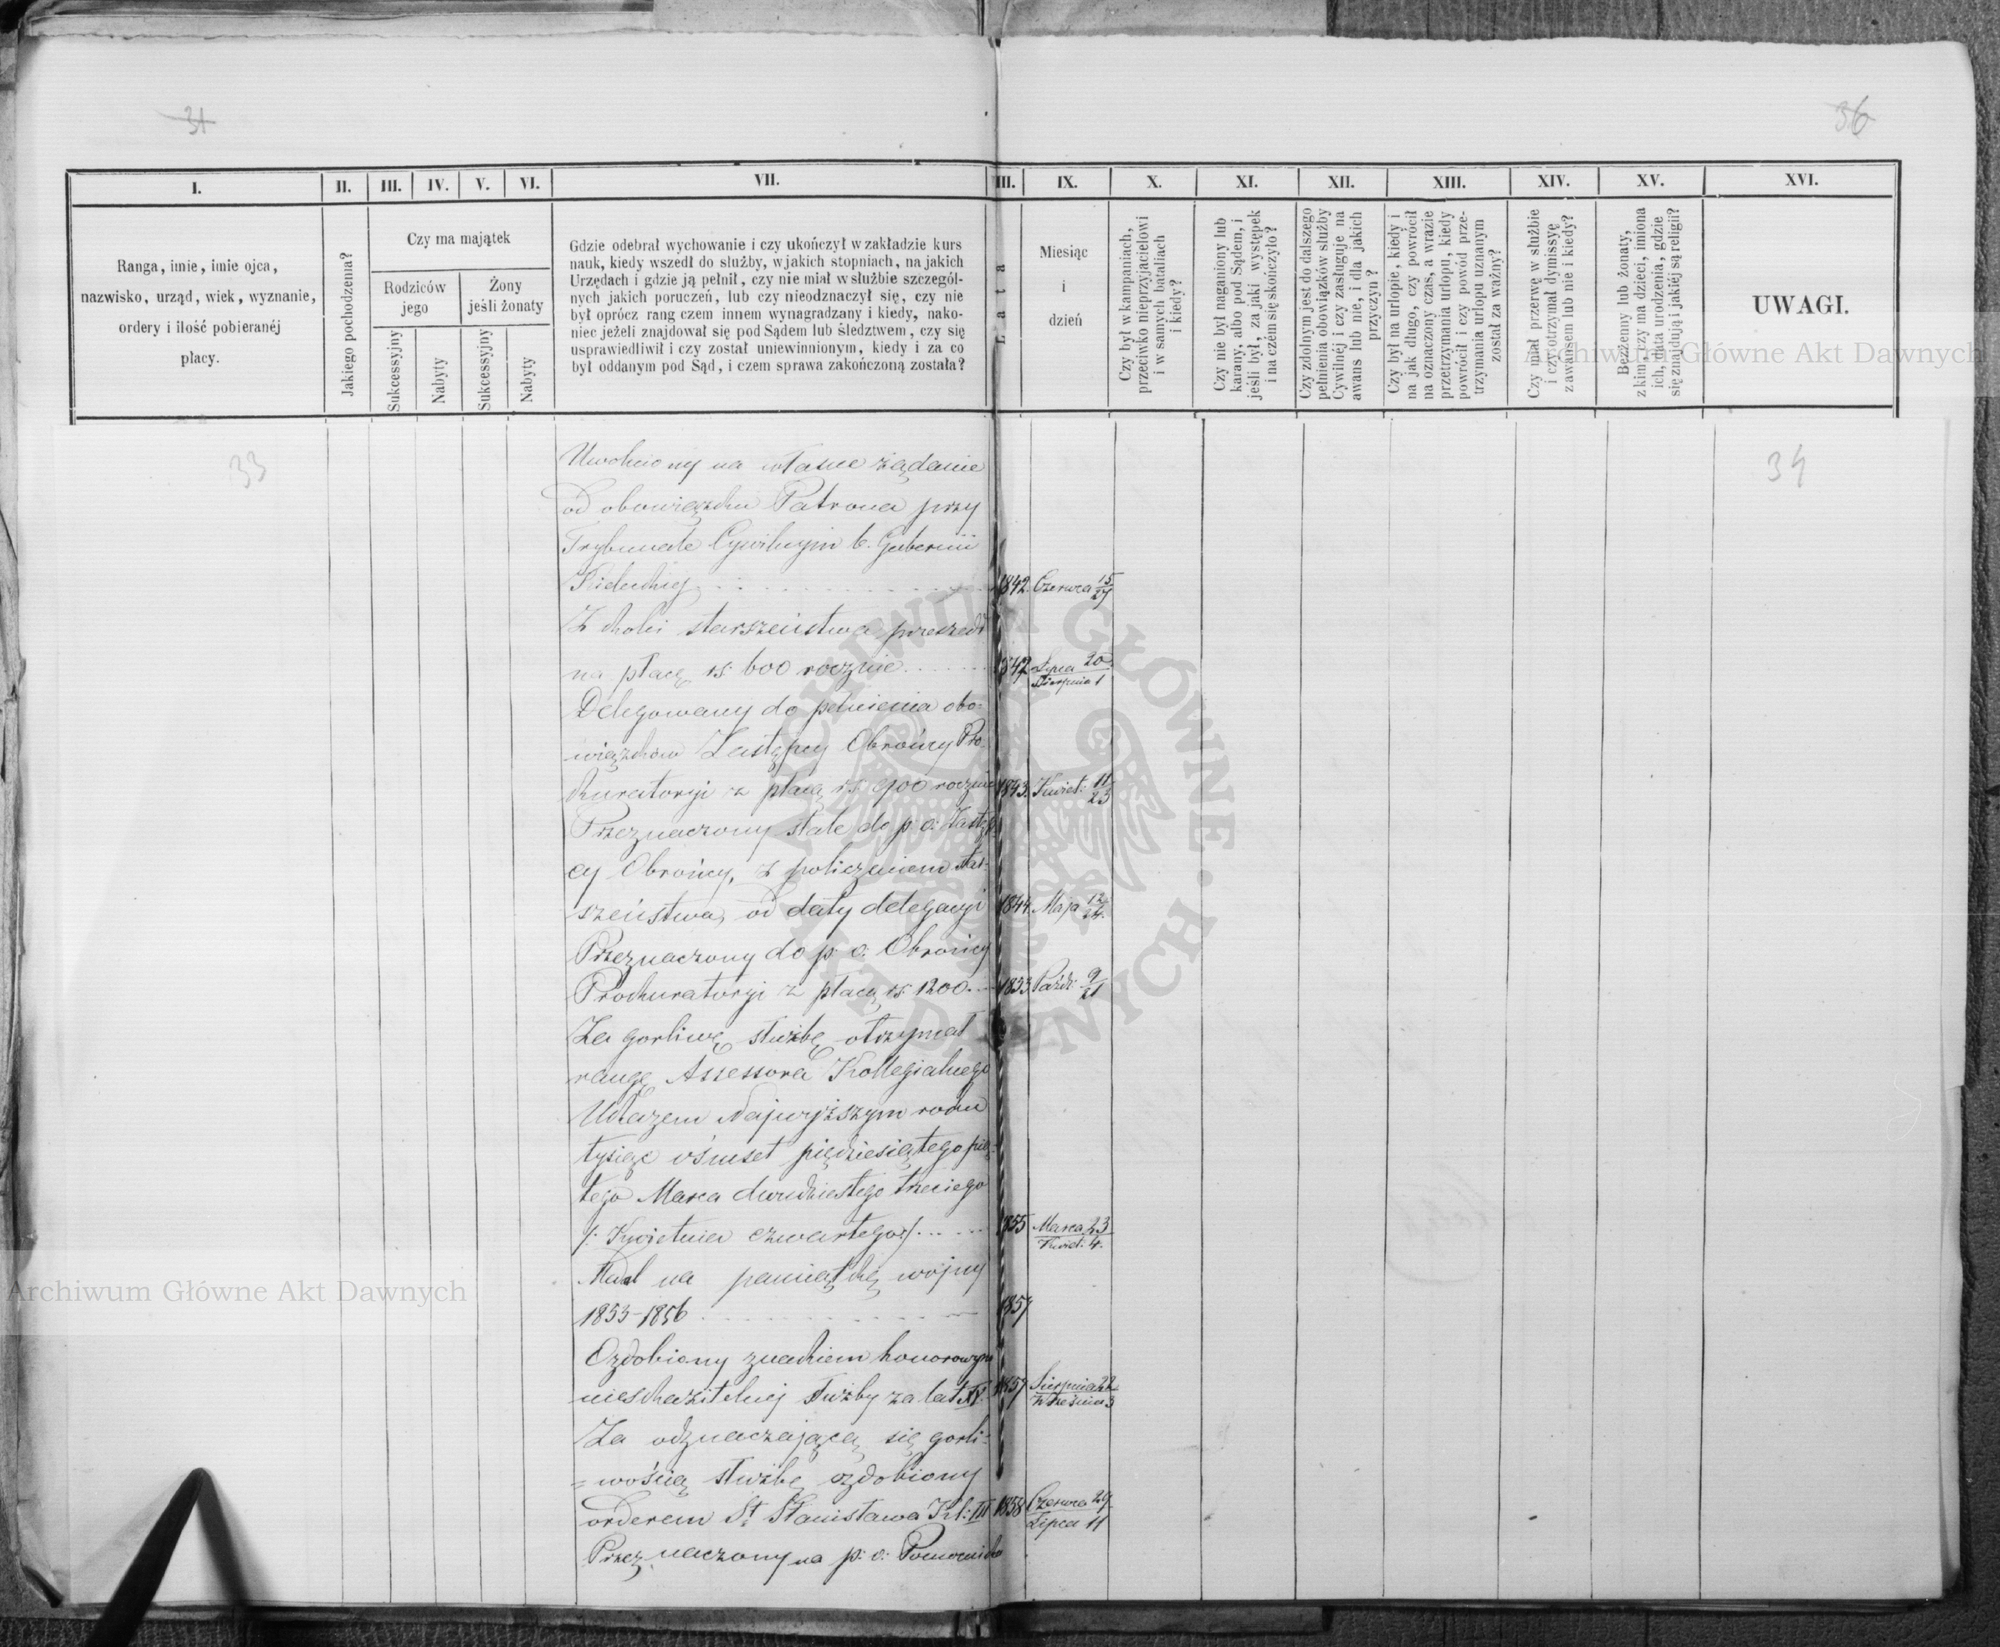 31
36
I.
II.
III.
IV.
V.
VI.
VII.
III.
IX.
X.
XI.
XII.
XIII.
XIV.
XV.
XVI.
Ranga, imie, imie ojca,
nazwisko, urząd, wiek, wyznanie,
ordery i ilość pobieranéj
płacy.
Jakiego pochodzenia?
Czy ma majątek
Rodziców
jego
Żony
jeśli żonaty
Sukcessyjny
Nabyty
Sukcessyjny
Nabyty
Gdzie odebrał wychowanie i czy ukończył w zakładzie kurs
nauk, kiedy wszedł do służby, w jakich stopniach, na jakich
Urzędach i gdzie ją pełnił, czy nie miał w służbie szczegól-
nych jakich poruczeń, lub czy nieodznaczył się, czy nie
był oprócz rang czem innem wynagradzany i kiedy, nako-
niec jeżeli znajdował się pod Sądem lub śledztwem, czy się
usprawiedliwił i czy został uniewinnionym, kiedy i za co
był oddanym pod Sąd, i czem sprawa zakończoną została?
Lata
Miesiąc
i
dzień
Czy był w kampaniach,
przeciwko nieprzyjacielowi
i w samych bataliach
i kiedy?
Czy nie był naganiony lub
karany, albo pod Sądem, i
jeśli był, za jaki występek
i na czem się skończyło?
Czy zdolnym jest do dalszego
pełnienia obowiązków służby
Cywilnéj i czy zasługuje na
awans lub nie, i dla jakich
przyczyn?
Czy był na urlopie, kiedy i
na jak długo, czy powrócił
na oznaczony czas, a w razie
przetrzymania urlopu, kiedy
powrócił i czy powód prze-
trzymania urlopu uznanym
został za ważny?
Czy miał przerwę w służbie
i czy otrzymał dymissyę
z awansem lub nie i kiedy?
Bezżenny lub żonaty,
z kim, czy ma dzieci, imiona
ich, data urodzenia, gdzie
się znajdują i jakiéj są religii?
UWAGI.
Archiwum Główne Akt Dawnych
33
34
Uwolniony na własne żądanie
od obowiązku Patrona przy
Trybunale Cywilnym b. Gubernii
Kieleckiej 1842. Czerwca 15/27
Z kolei starszeństwa przeszedł
na płacę rs. 600 rocznie 1842 Lipca 20/Sierpnia 1
Delegowany do pełnienia obo-
wiązków Zastępcy Obrońcy Pro-
kuratoryi z płacą rs. 900 rocznie 1843. Kwiet: 11/23
Przeznaczony stale do p. o. Zastęp-
cy Obrońcy, z policzeniem star-
szeństwa, od daty delegacyi 1844. Maja 12/24.
Przeznaczony do p. o. Obrońcy
Prokuratoryi z płacą rs. 1200. 1853 Paźdz: 9/21
Za gorliwą służbę otrzymał
rangę Assessora Kollegialnego
Ukazem Najwyższym roku
tysiąc ośmset pięćdziesiątego pią-
tego Marca dwudziestego trzeciego
/: Kwietnia czwartego :/ 1855 Marca 23/Kwiet: 4.
Medal na pamiątkę wojny
1853-1856 1857
Ozdobiony znakiem honorowym
nieskazitelnej służby za lat XV. 1857 Sierpnia 22/Września 3
Za odznaczającą się gorli-
=wością służbę ozdobiony
orderem St. Stanisława Kl: III 1858 Czerwca 29/Lipca 11
Przeznaczony na p. o. Pomocnika
ARCHIWUM GŁÓWNE AKT DAWNYCH
Archiwum Główne Akt Dawnych